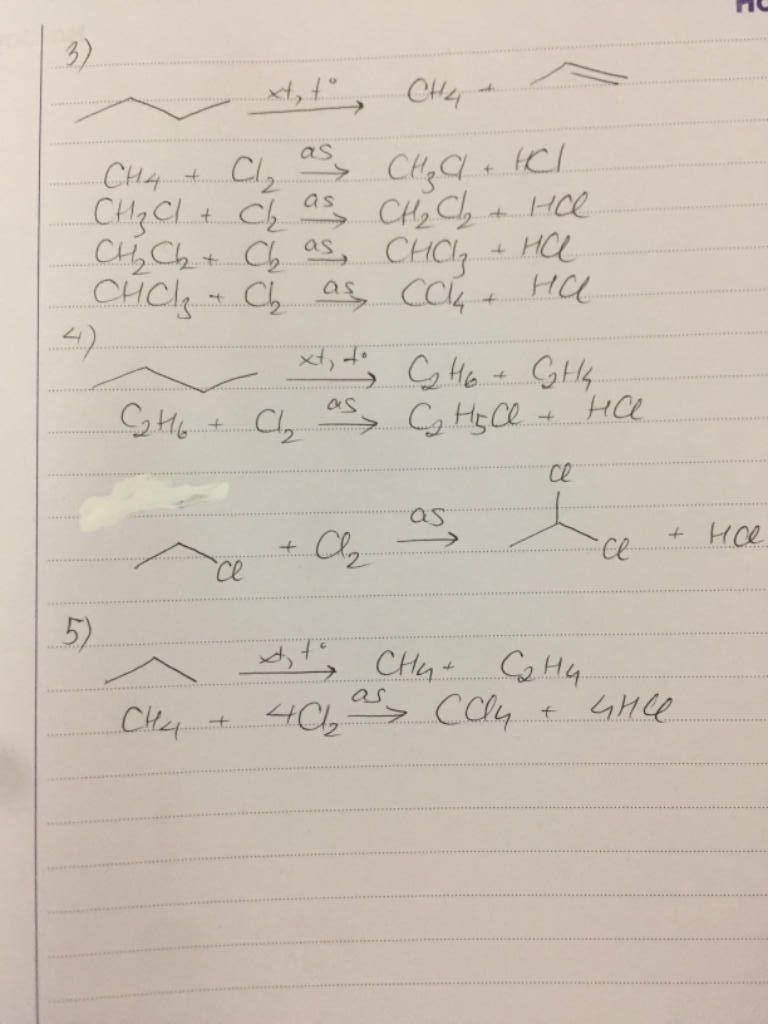 HO
3)
xt, t° → CH4 +
CH4 + Cl2 as → CH3Cl + HCl
CH3Cl + Cl2 as → CH2Cl2 + HCl
CH2Cl2 + Cl2 as → CHCl3 + HCl
CHCl3 + Cl2 as → CCl4 + HCl
4)
xt, t° → C2H6 + C2H4
C2H6 + Cl2 as → C2H5Cl + HCl
Cl
Cl + Cl2 as → Cl + HCl
5)
xt, t° → CH4 + C2H4
CH4 + 4Cl2 as → CCl4 + 4HCl